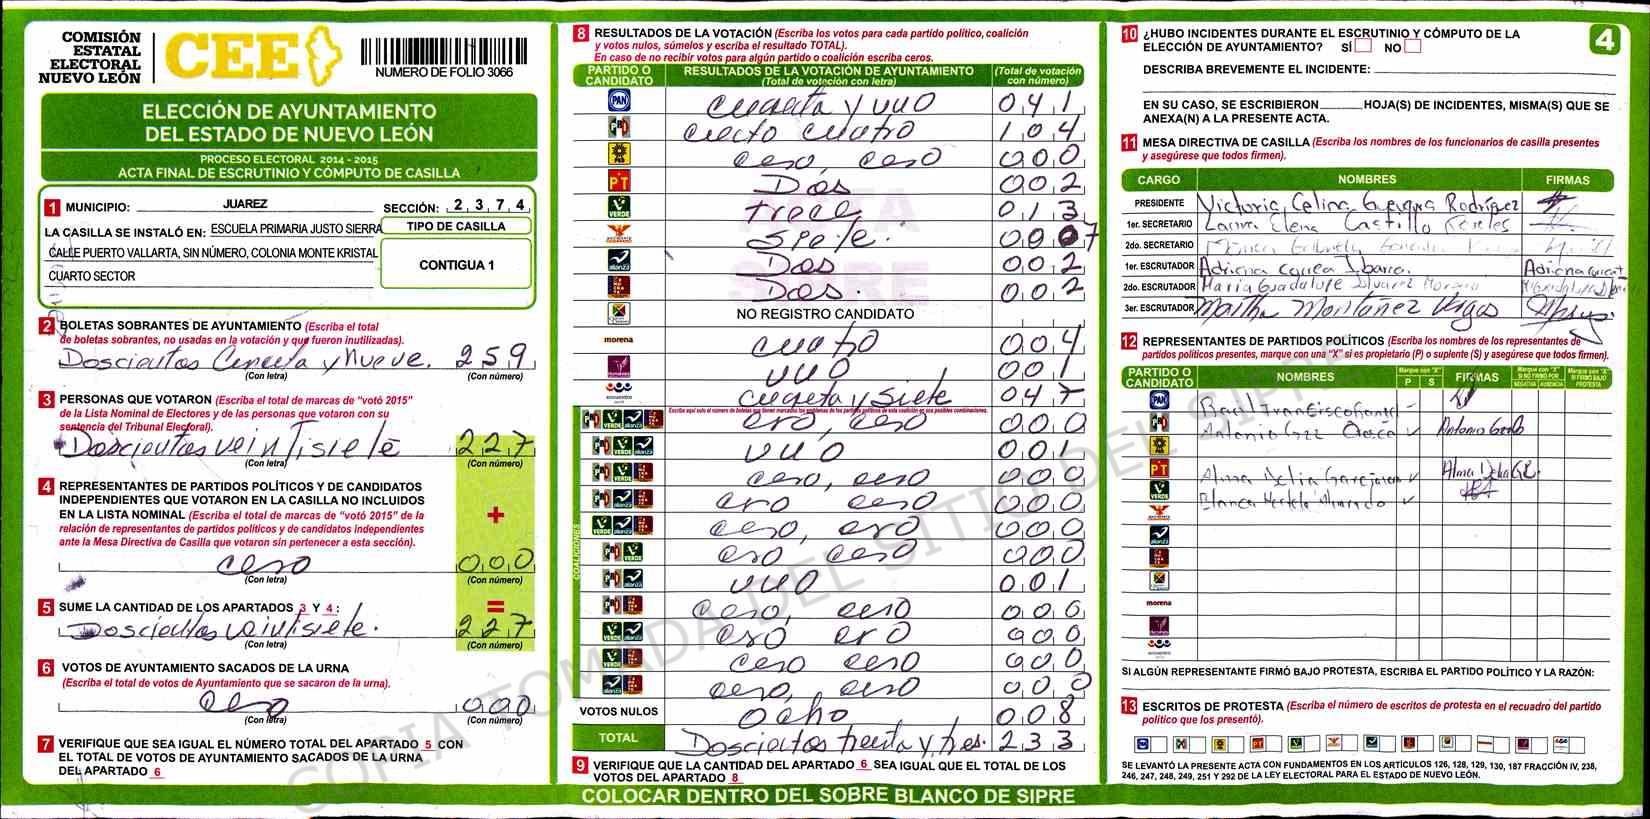 COMISIÓN
ESTATAL
ELECTORAL
NUEVO LEÓN
CEE
NUMERO DE FOLIO 3066
ELECCIÓN DE AYUNTAMIENTO
DEL ESTADO DE NUEVO LEÓN
PROCESO ELECTORAL 2014 - 2015
ACTA FINAL DE ESCRUTINIO Y CÓMPUTO DE CASILLA
1 MUNICIPIO: JUAREZ SECCIÓN: 2 3 7 4
LA CASILLA SE INSTALÓ EN: ESCUELA PRIMARIA JUSTO SIERRA
CALLE PUERTO VALLARTA, SIN NÚMERO, COLONIA MONTE KRISTAL
CUARTO SECTOR
TIPO DE CASILLA
CONTIGUA 1
2 BOLETAS SOBRANTES DE AYUNTAMIENTO (Escriba el total
de boletas sobrantes, no usadas en la votación y que fueron inutilizadas).
Doscientos Cincuenta y Nueve. 2 5 9
(Con letra) (Con número)
3 PERSONAS QUE VOTARON (Escriba el total de marcas de "votó 2015"
de la Lista Nominal de Electores y de las personas que votaron con su
sentencia del Tribunal Electoral).
Doscientos veintisiete 2 2 7
(Con letra) (Con número)
4 REPRESENTANTES DE PARTIDOS POLÍTICOS Y DE CANDIDATOS
INDEPENDIENTES QUE VOTARON EN LA CASILLA NO INCLUIDOS
EN LA LISTA NOMINAL (Escriba el total de marcas de "votó 2015" de la
relación de representantes de partidos políticos y de candidatos independientes
ante la Mesa Directiva de Casilla que votaron sin pertenecer a esta sección).
+
cero 0 0 0
(Con letra) (Con número)
5 SUME LA CANTIDAD DE LOS APARTADOS 3 Y 4 : =
Doscientos veintisiete. 2 2 7
(Con letra) (Con número)
6 VOTOS DE AYUNTAMIENTO SACADOS DE LA URNA
(Escriba el total de votos de Ayuntamiento que se sacaron de la urna).
cero 0 0 0
(Con letra) (Con número)
7 VERIFIQUE QUE SEA IGUAL EL NÚMERO TOTAL DEL APARTADO 5 CON
EL TOTAL DE VOTOS DE AYUNTAMIENTO SACADOS DE LA URNA
DEL APARTADO 6
8 RESULTADOS DE LA VOTACIÓN (Escriba los votos para cada partido político, coalición
y votos nulos, súmelos y escriba el resultado TOTAL).
En caso de no recibir votos para algún partido o coalición escriba ceros.
PARTIDO O CANDIDATO RESULTADOS DE LA VOTACIÓN DE AYUNTAMIENTO (Total de votación con letra) (Total de votación con número)
PAN cuarenta y uno 0 4 1
PRI ciento cuatro 1 0 4
PRD cero, cero 0 0 0
PT Dos 0 0 2
VERDE trece 0 1 3
siete. 0 0 7
alianza Dos 0 0 2
Dos. 0 0 2
NO REGISTRO CANDIDATO
morena cuatro 0 0 4
uno 0 0 1
encuentro cuarenta y siete 0 4 7
COALICIONES
Escriba aquí solo el número de boletas que tienen marcados los emblemas de los partidos políticos de esta coalición en sus posibles combinaciones.
PRI VERDE alianza cero, cero 0 0 0
PRI VERDE alianza uno 0 0 1
PRI VERDE cero, cero 0 0 0
PRI alianza cero cero 0 0 0
VERDE alianza cero, cero 0 0 0
PRI VERDE cero cero 0 0 0
PRI alianza uno 0 0 1
PRI cero, cero 0 0 0
VERDE alianza cero cero 0 0 0
VERDE cero cero 0 0 0
alianza cero, cero 0 0 0
VOTOS NULOS ocho 0 0 8
TOTAL Doscientos treinta y tres. 2 3 3
9 VERIFIQUE QUE LA CANTIDAD DEL APARTADO 6 SEA IGUAL QUE EL TOTAL DE LOS
VOTOS DEL APARTADO 8
COLOCAR DENTRO DEL SOBRE BLANCO DE SIPRE
ACTA
SIPRE
COPIA TOMADA DEL SITIO DEL SIPRE
4
10 ¿HUBO INCIDENTES DURANTE EL ESCRUTINIO Y CÓMPUTO DE LA
ELECCIÓN DE AYUNTAMIENTO? SÍ NO
DESCRIBA BREVEMENTE EL INCIDENTE:
EN SU CASO, SE ESCRIBIERON HOJA(S) DE INCIDENTES, MISMA(S) QUE SE
ANEXA(N) A LA PRESENTE ACTA.
11 MESA DIRECTIVA DE CASILLA (Escriba los nombres de los funcionarios de casilla presentes
y asegúrese que todos firmen).
CARGO NOMBRES FIRMAS
PRESIDENTE Victoria Celina Guevara Rodríguez
1er. SECRETARIO Laura Elena Castillo
2do. SECRETARIO Gabriela
1er. ESCRUTADOR Adriana Correa Ibarra.
2do. ESCRUTADOR María Guadalupe Alvarez Moreno
3er. ESCRUTADOR Martha Montañez Vargas
12 REPRESENTANTES DE PARTIDOS POLÍTICOS (Escriba los nombres de los representantes de
partidos políticos presentes, marque con una "X" si es propietario (P) o suplente (S) y asegúrese que todos firmen).
PARTIDO O CANDIDATO NOMBRES Marque con "X" P S FIRMAS Marque con "X" SI NO FIRMÓ POR NEGATIVA AUSENCIA Marque con "X" SI FIRMÓ BAJO PROTESTA
PAN Raúl Francisco
PRI Antonio Gzz
PT Alma Delia
VERDE Blanca
alianza
morena
encuentro
SI ALGÚN REPRESENTANTE FIRMÓ BAJO PROTESTA, ESCRIBA EL PARTIDO POLÍTICO Y LA RAZÓN:
13 ESCRITOS DE PROTESTA (Escriba el número de escritos de protesta en el recuadro del partido
político que los presentó).
SE LEVANTÓ LA PRESENTE ACTA CON FUNDAMENTOS EN LOS ARTÍCULOS 126, 128, 129, 130, 187 FRACCIÓN IV, 238,
246, 247, 248, 249, 251 Y 292 DE LA LEY ELECTORAL PARA EL ESTADO DE NUEVO LEÓN.